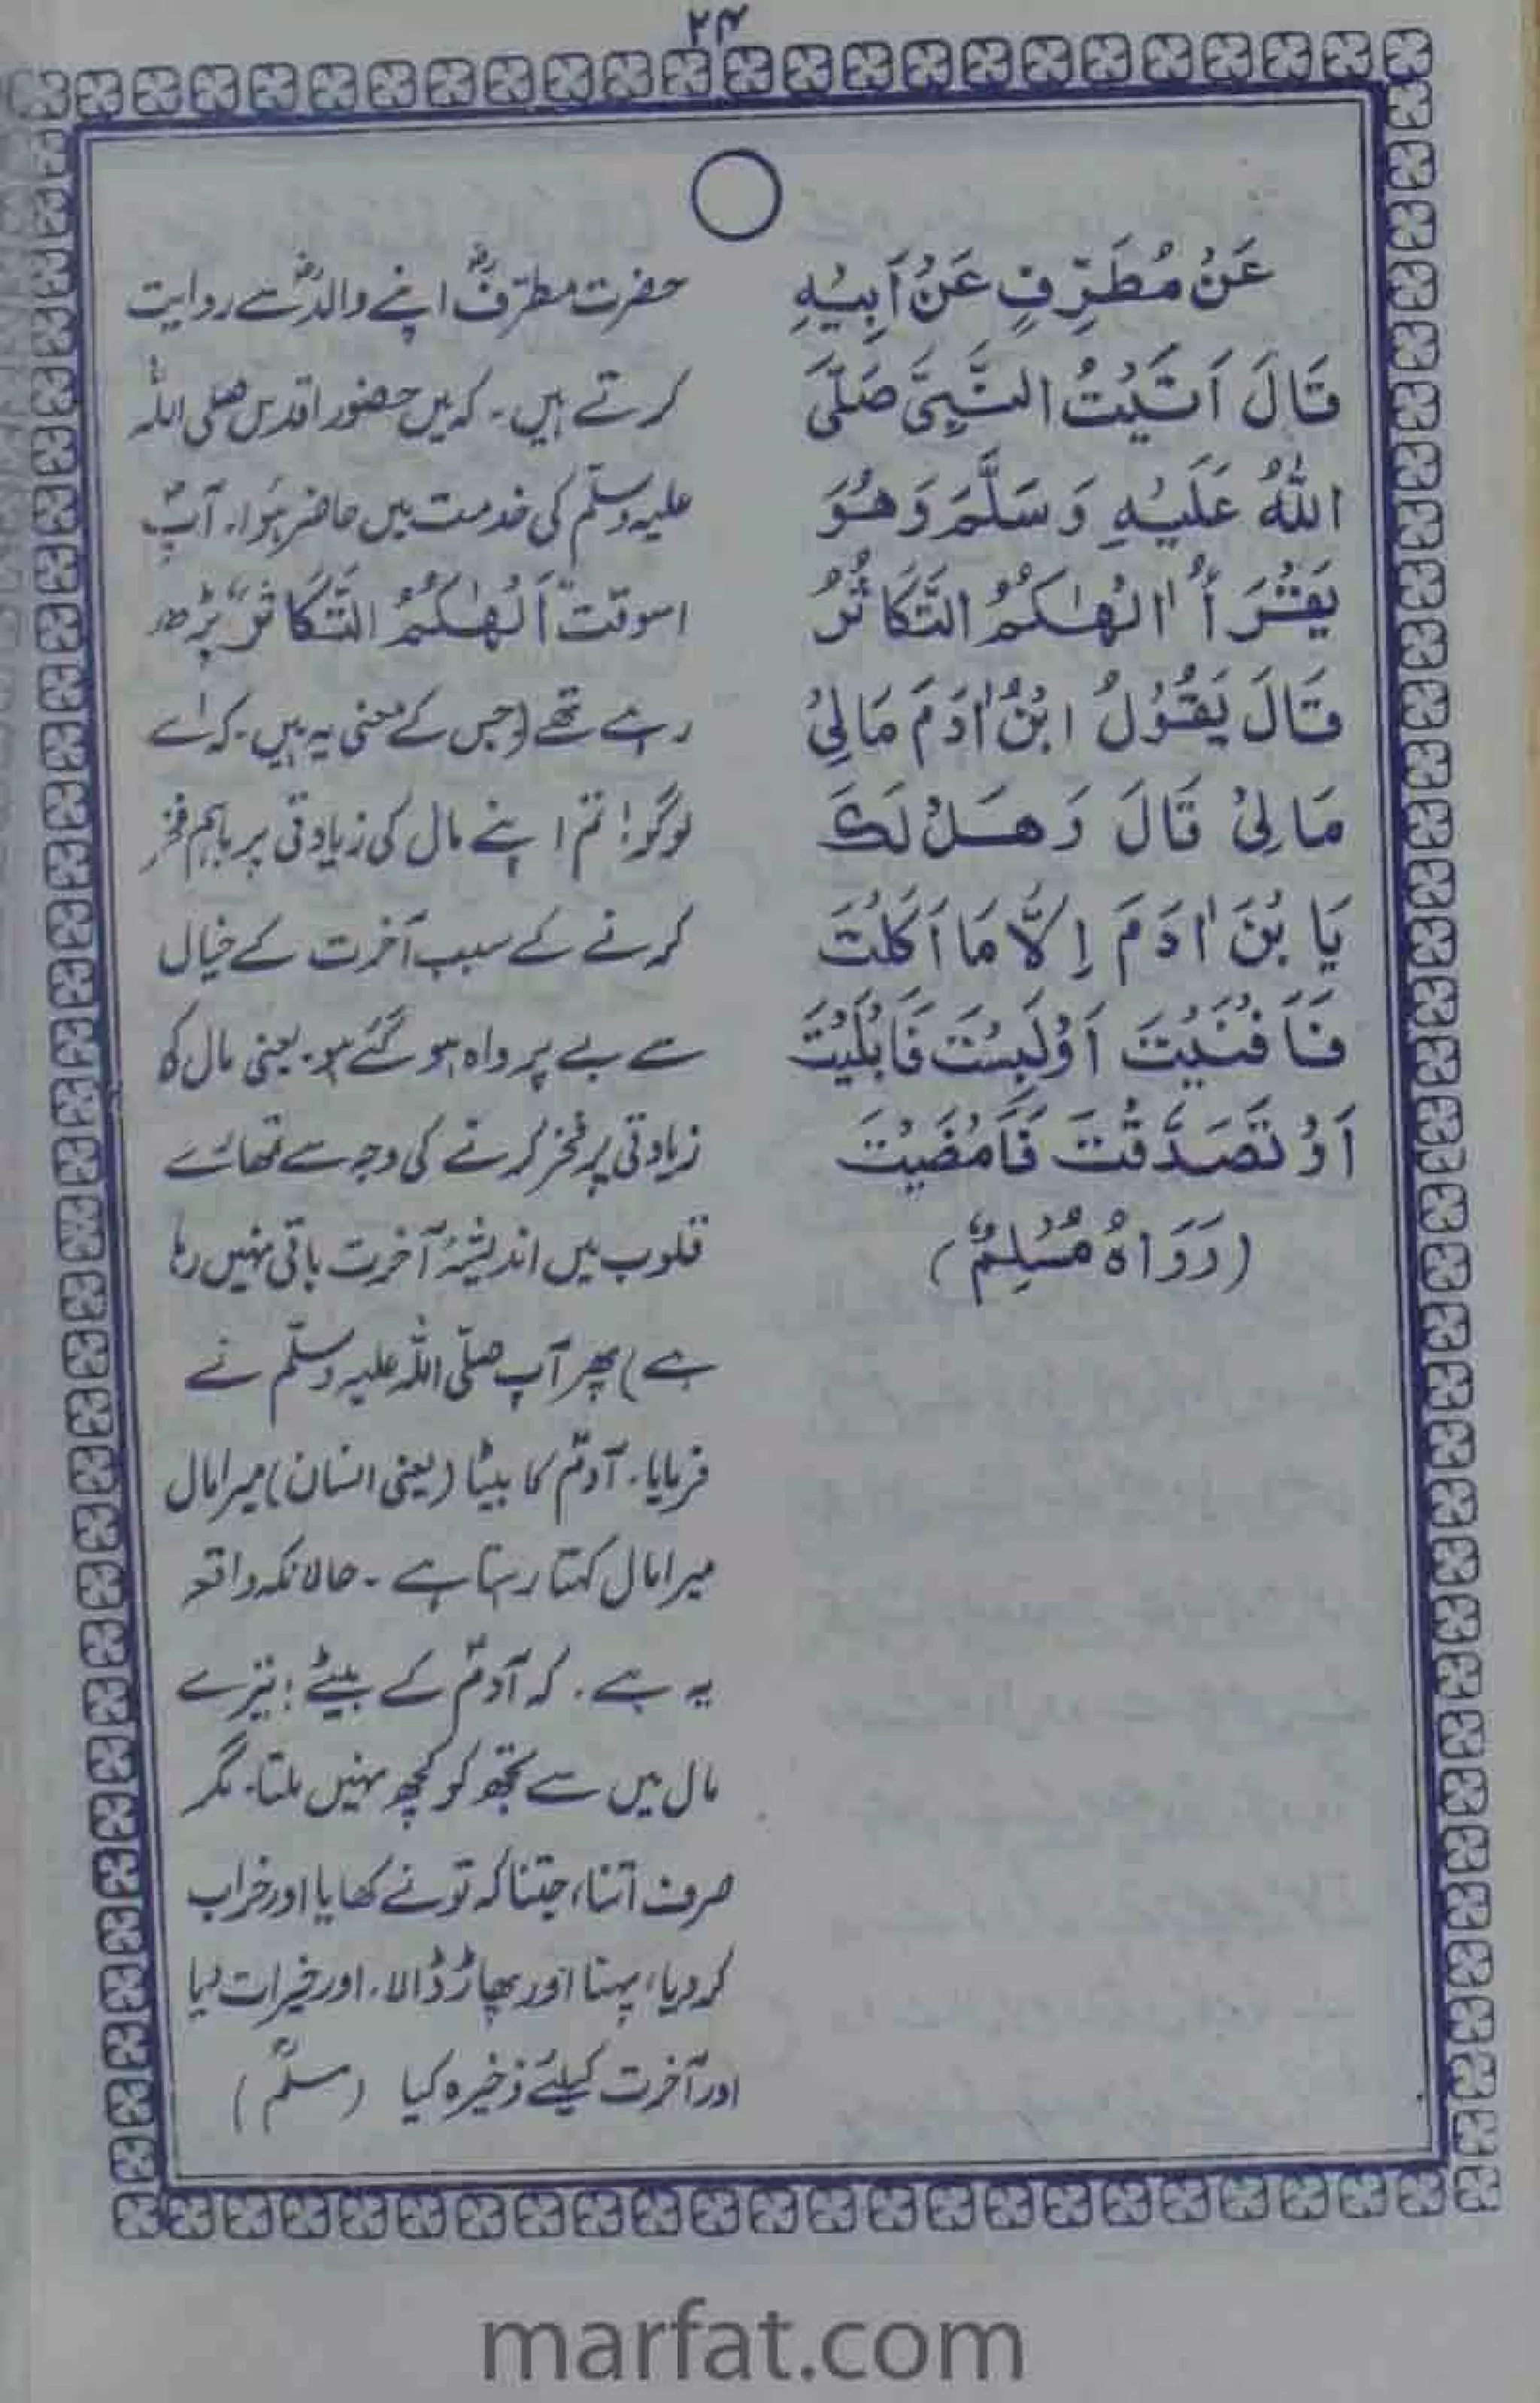 ۲۴
عَنْ مُطَرِّفٍ عَنْ اَبِیْهِ
قَالَ اَتَیْتُ النَّبِیَّ صَلَّی
اللّٰهُ عَلَیْهِ وَسَلَّمَ وَهُوَ
یَقْرَأُ اَلْهٰکُمُ التَّکَاثُرُ
قَالَ یَقُوْلُ ابْنُ اٰدَمَ مَالِیْ
مَالِیْ قَالَ وَهَلْ لَكَ
یَا بْنَ اٰدَمَ اِلَّا مَا اَکَلْتَ
فَاَفْنَیْتَ اَوْ لَبِسْتَ فَاَبْلَیْتَ
اَوْ تَصَدَّقْتَ فَاَمْضَیْتَ
(رَوَاهُ مُسْلِمٌ)
حضرت مطرّفؓ اپنے والدؓ سے روایت
کرتے ہیں۔ کہ میں حضور اقدس صلی اللہ
علیہ وسلّم کی خدمت میں حاضر ہوا۔ آپؐ
اسوقت "اَلْهٰکُمُ التَّکَاثُر" پڑھ
رہے تھے (جس کے معنی یہ ہیں۔ کہ اے
لوگو! تم اپنے مال کی زیادتی پر باہم فخر
کرنے کے سبب آخرت کے خیال
سے بے پرواہ ہو گئے ہو۔ یعنی مال کی
زیادتی پر فخر کرنے کی وجہ سے تمھارے
قلوب میں اندیشۂ آخرت باقی نہیں رہا
ہے) پھر آپ صلّی اللہ علیہ وسلّم نے
فرمایا۔ آدمؑ کا بیٹا (یعنی انسان) میرا مال
میرا مال کہتا رہتا ہے۔ حالانکہ واقعہ
یہ ہے۔ کہ آدمؑ کے بیٹے! تیرے
مال میں سے تجھ کو کچھ نہیں ملتا۔ مگر
صرف اتنا، جتنا کہ تو نے کھایا اور خراب
کر دیا، پہنا اور پھاڑ ڈالا، اور خیرات کیا
اور آخرت کیلئے ذخیرہ کیا (مسلمؒ)
marfat.com